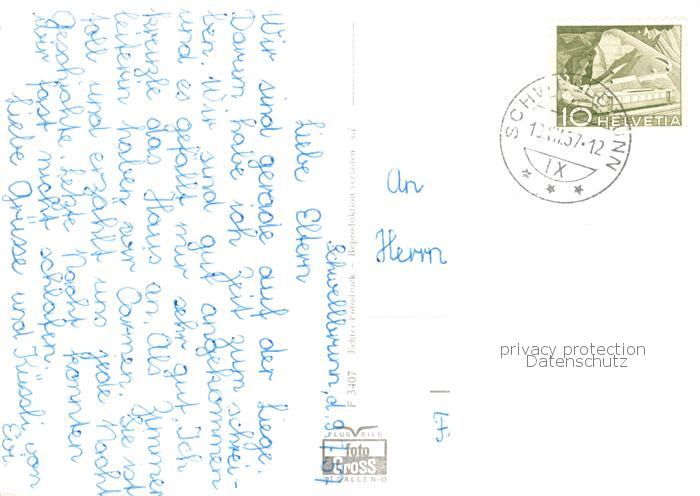 Schwellbrunn, d. 9.7.57
Liebe Eltern
Wir sind gerade auf der Liege.
Darum habe ich Zeit zum schrei-
ben. Wir sind gut angekommen
und es gefällt mir sehr gut. Ich
kenne das Haus an. Als Zimmer
haben wir Carmen. Sie ist
toll und erzählt uns jede Nacht
Geschichte. Letzte Nacht konnten
wir fast nicht schlafen.
Liebe Grüsse und Küssli von
An
Herrn
HELVETIA
10
SCHWELLBRUNN
57-12
IX
F 3407 Echter Fotodruck - Reproduktion verboten
FLUGBILD
foto
Gross
ST.GALLEN-O
privacy protection
Datenschutz